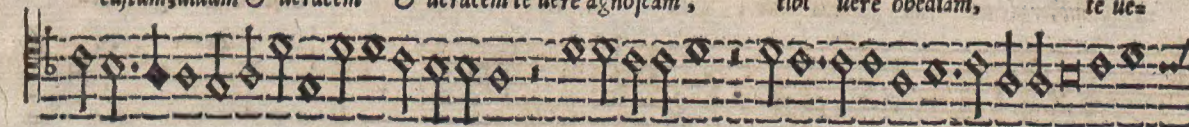 & ueracem & ueracem te uere agnoſcam, tibi uere obediam, te ue=